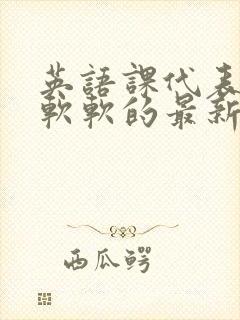 英語課代表
軟軟的最新
西瓜鳄